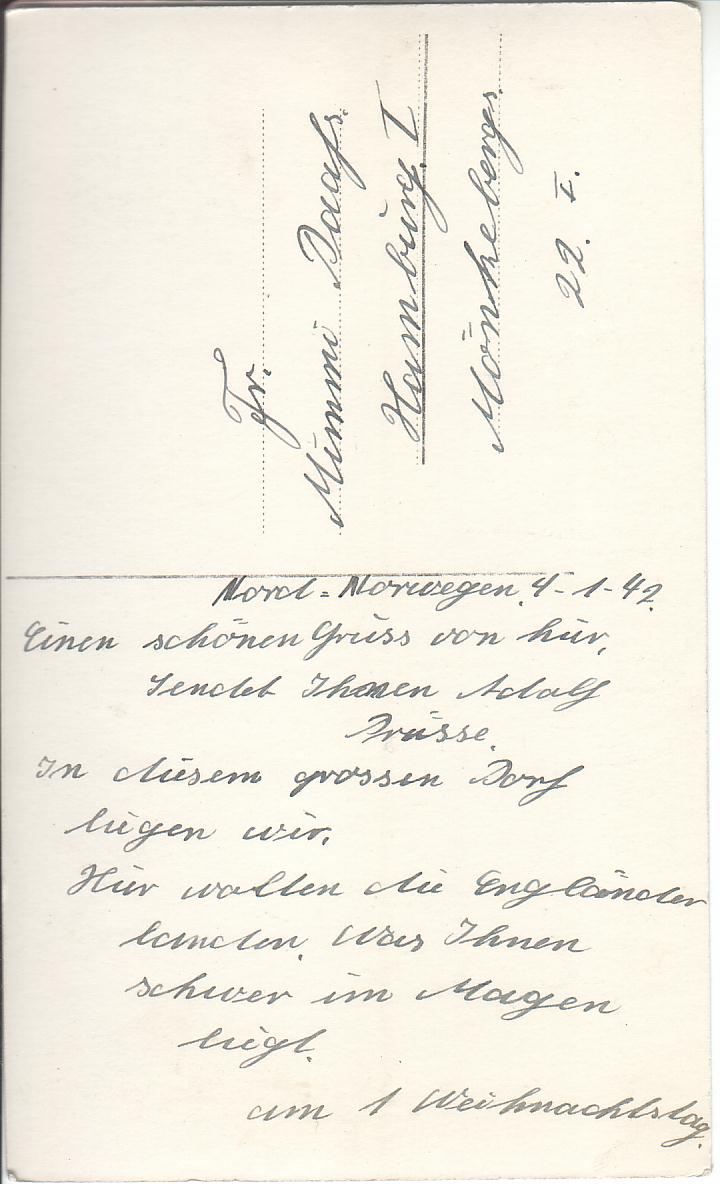 Fr.
Mimmi Daafs.
Hamburg. I
Mönkebergs.
22. I.
Nord = Norwegen. 4-1-42.
Einen schönen Gruss von hier,
sendet Ihnen Adolf
Drüsse.
In diesem grossen Dorf
liegen wir.
Hier wollten die Engländer
landen. Was Ihnen
schwer im Magen
liegt.
am 1 Weihnachtstag.